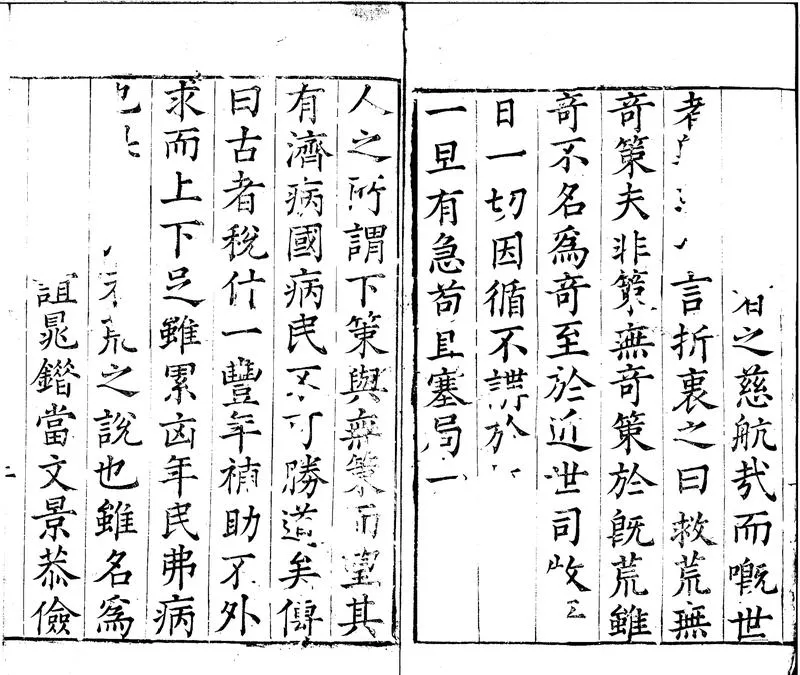 之慈航㢤而嘅世
者言折衷之曰救荒無
竒策夫非策無竒策於旣荒雖
竒不名爲竒至於近世司牧
日一切因循不講於
一旦有急苟且塞局一
人之所謂下策與無策而望其
有濟病國病民不可勝道矣傳
曰古者稅什一豐年補助不外
求而上下足雖累凶年民弗病
也
荒之說也雖名爲
誼鼂錯當文景恭儉